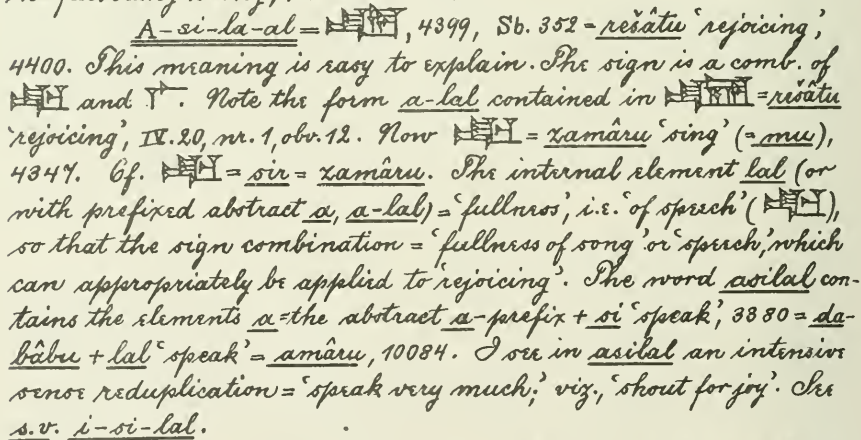 A-si-la-al = , 4399, Sb. 352 = rešâtu ‘rejoicing’,
4400. This meaning is easy to explain. The sign is a comb. of
and . Note the form a-lal contained in = rešâtu
‘rejoicing’, IV. 20, nr. 1, obv. 12. Now = zamâru ‘sing’ (= mu),
4347. Cf. = sir = zamâru. The internal element lal (or
with prefixed abstract a, a-lal) = ‘fullness’, i.e. ‘of speech’ ( ),
so that the sign combination = ‘fullness of song’ or ‘speech,’ which
can appropriately be applied to ‘rejoicing’. The word asilal con-
tains the elements a = the abstract a-prefix + si ‘speak’, 3380 = da-
bâbu + lal ‘speak’ = amâru, 10084. I see in asilal an intensive
sense reduplication = ‘speak very much,’ viz., ‘shout for joy’. See
s.v. i-si-lal.